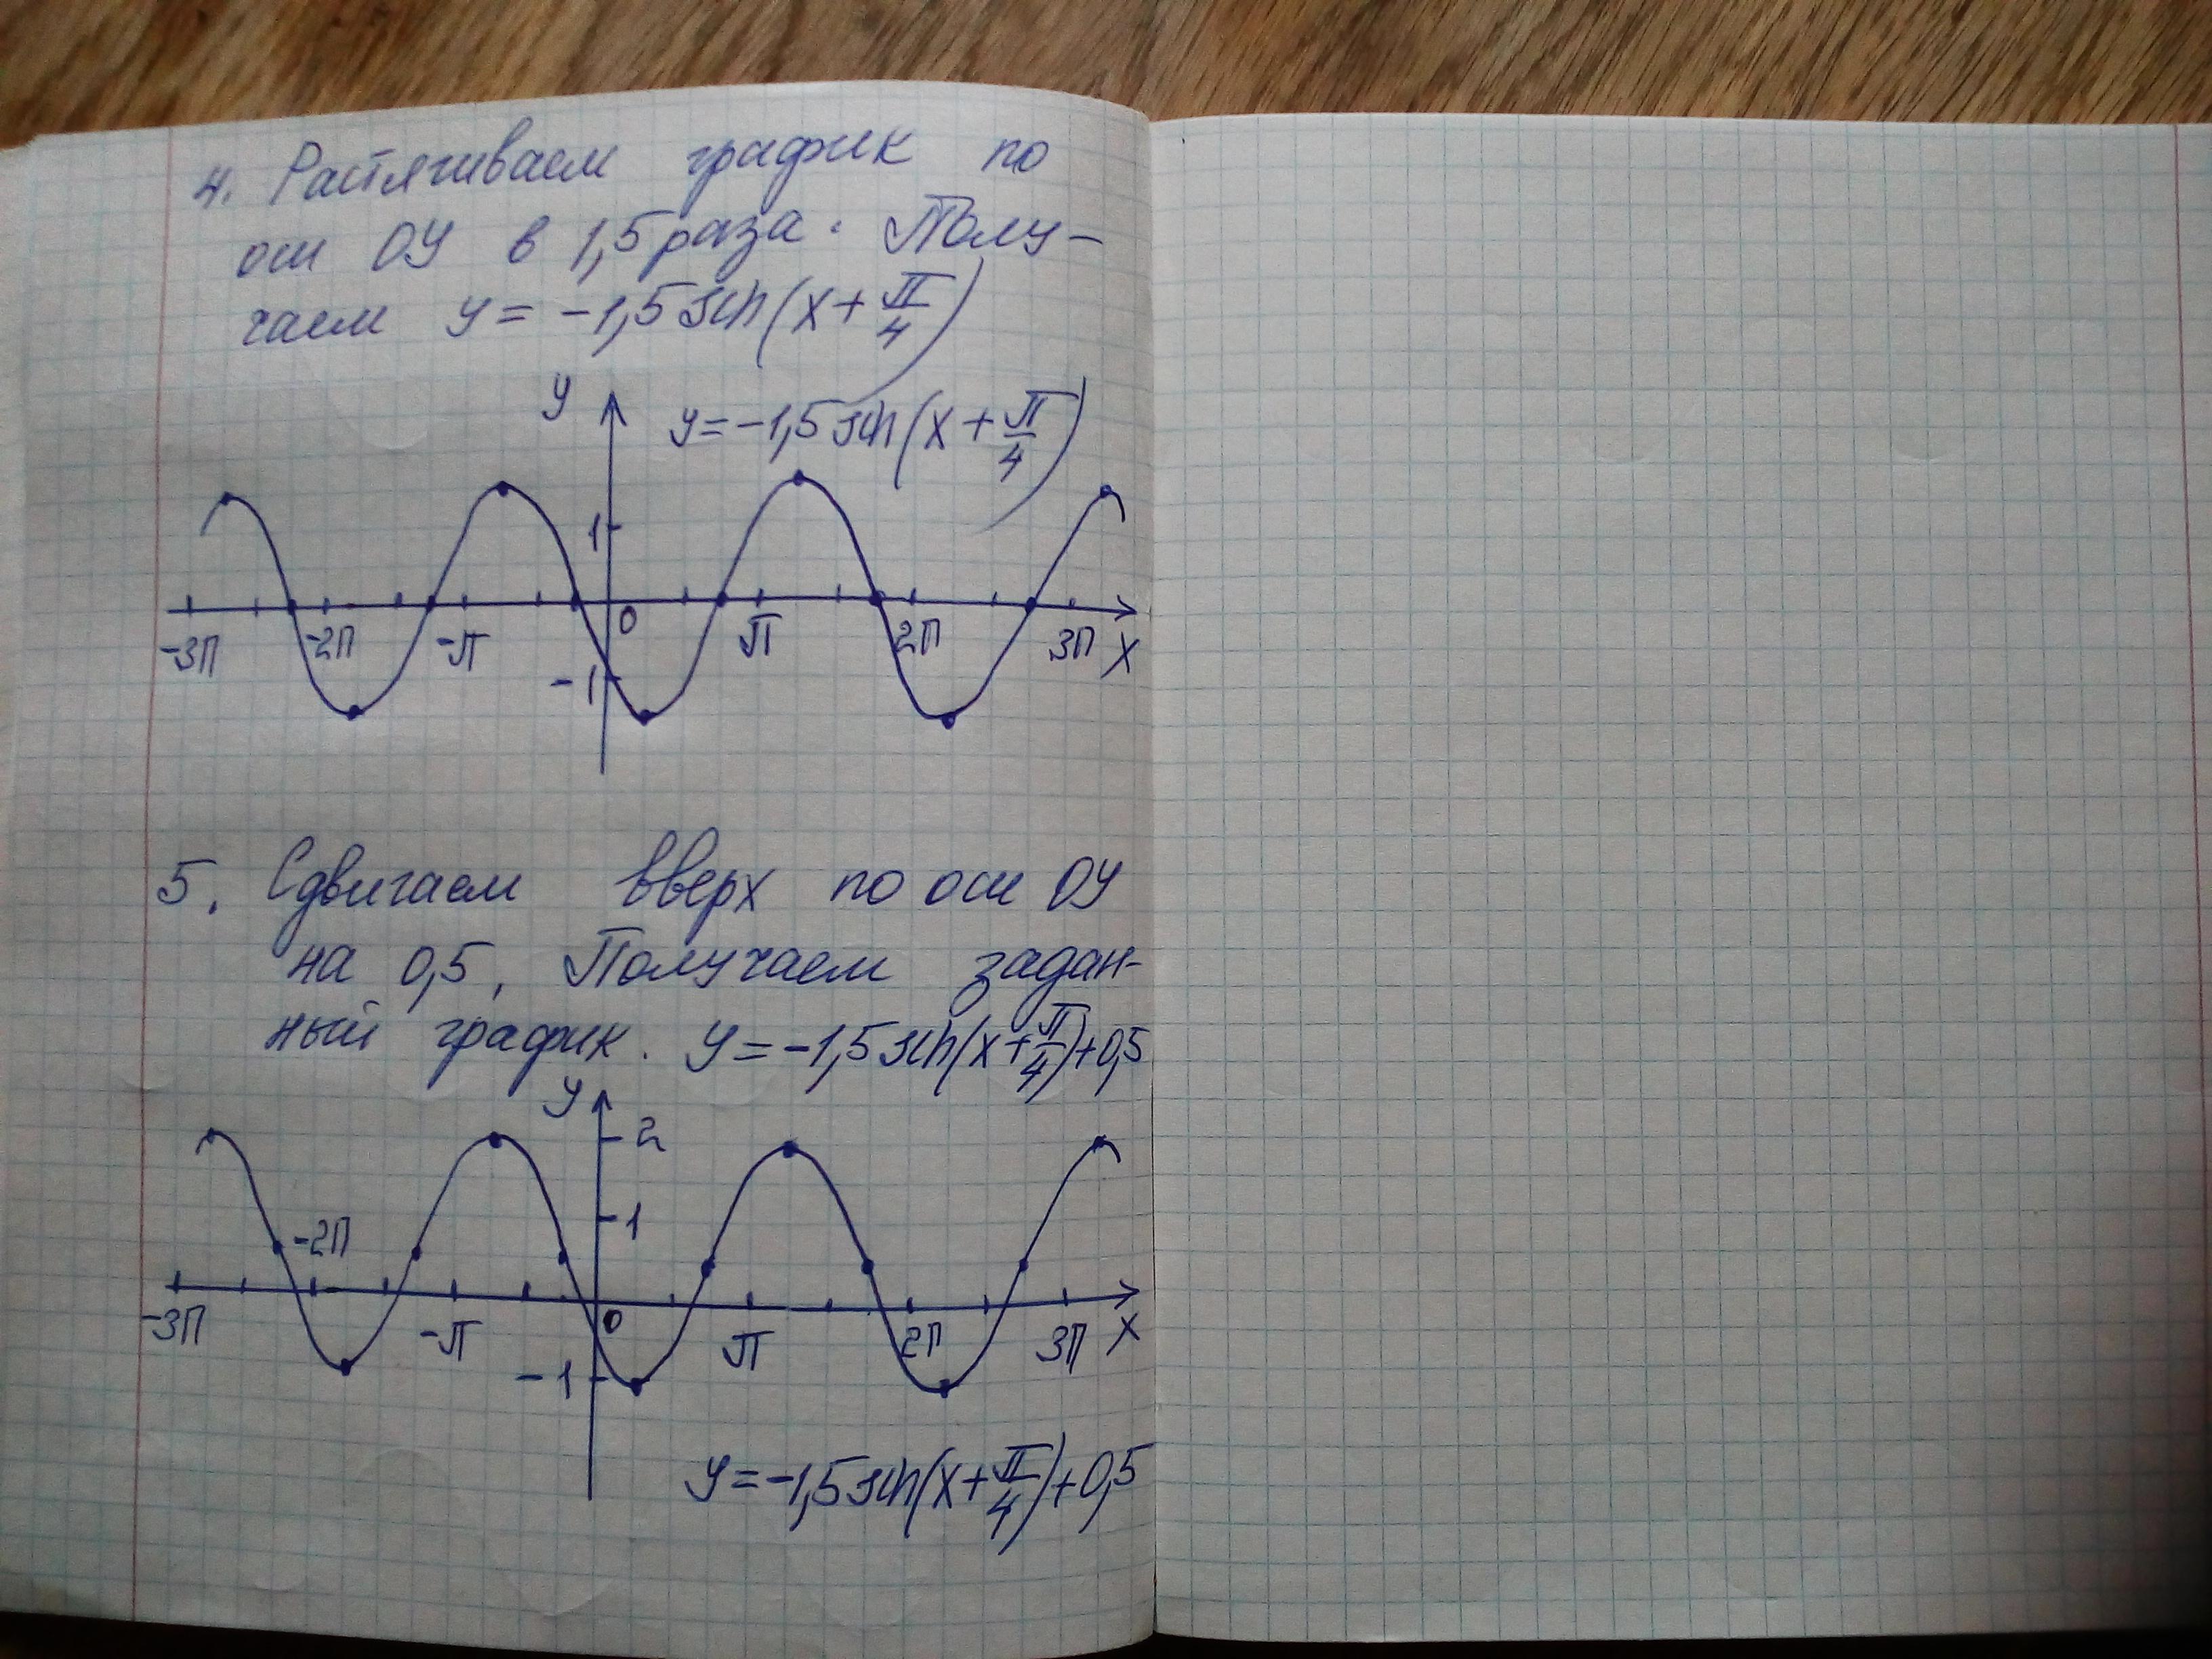 4. Растягиваем график по
оси ОУ в 1,5 раза. Полу-
чаем y = -1,5 sin(x + π/4)
y
y = -1,5 sin(x + π/4)
1
-3π -2π -π 0 π 2π 3π x
-1
5. Сдвигаем вверх по оси ОУ
на 0,5. Получаем задан-
ный график. y = -1,5 sin(x + π/4) + 0,5
y
2
1
-2π
-3π -π 0 π 2π 3π x
-1
y = -1,5 sin(x + π/4) + 0,5